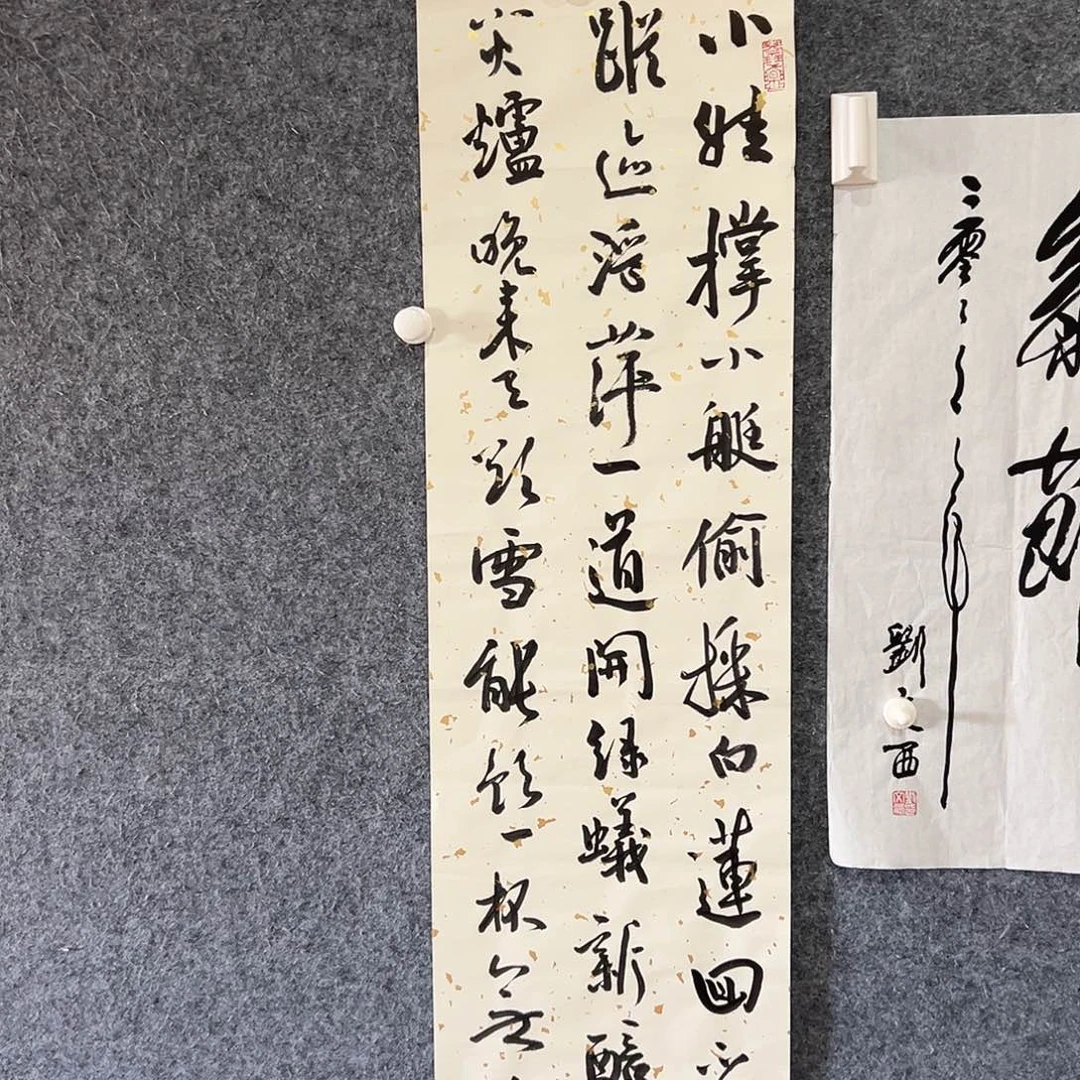 二零二
劉 西
小娃撐小艇偷採白蓮回不
蹤迹浮萍一道開緑蟻新醅
小火爐晚来天欲雪能飲一杯無